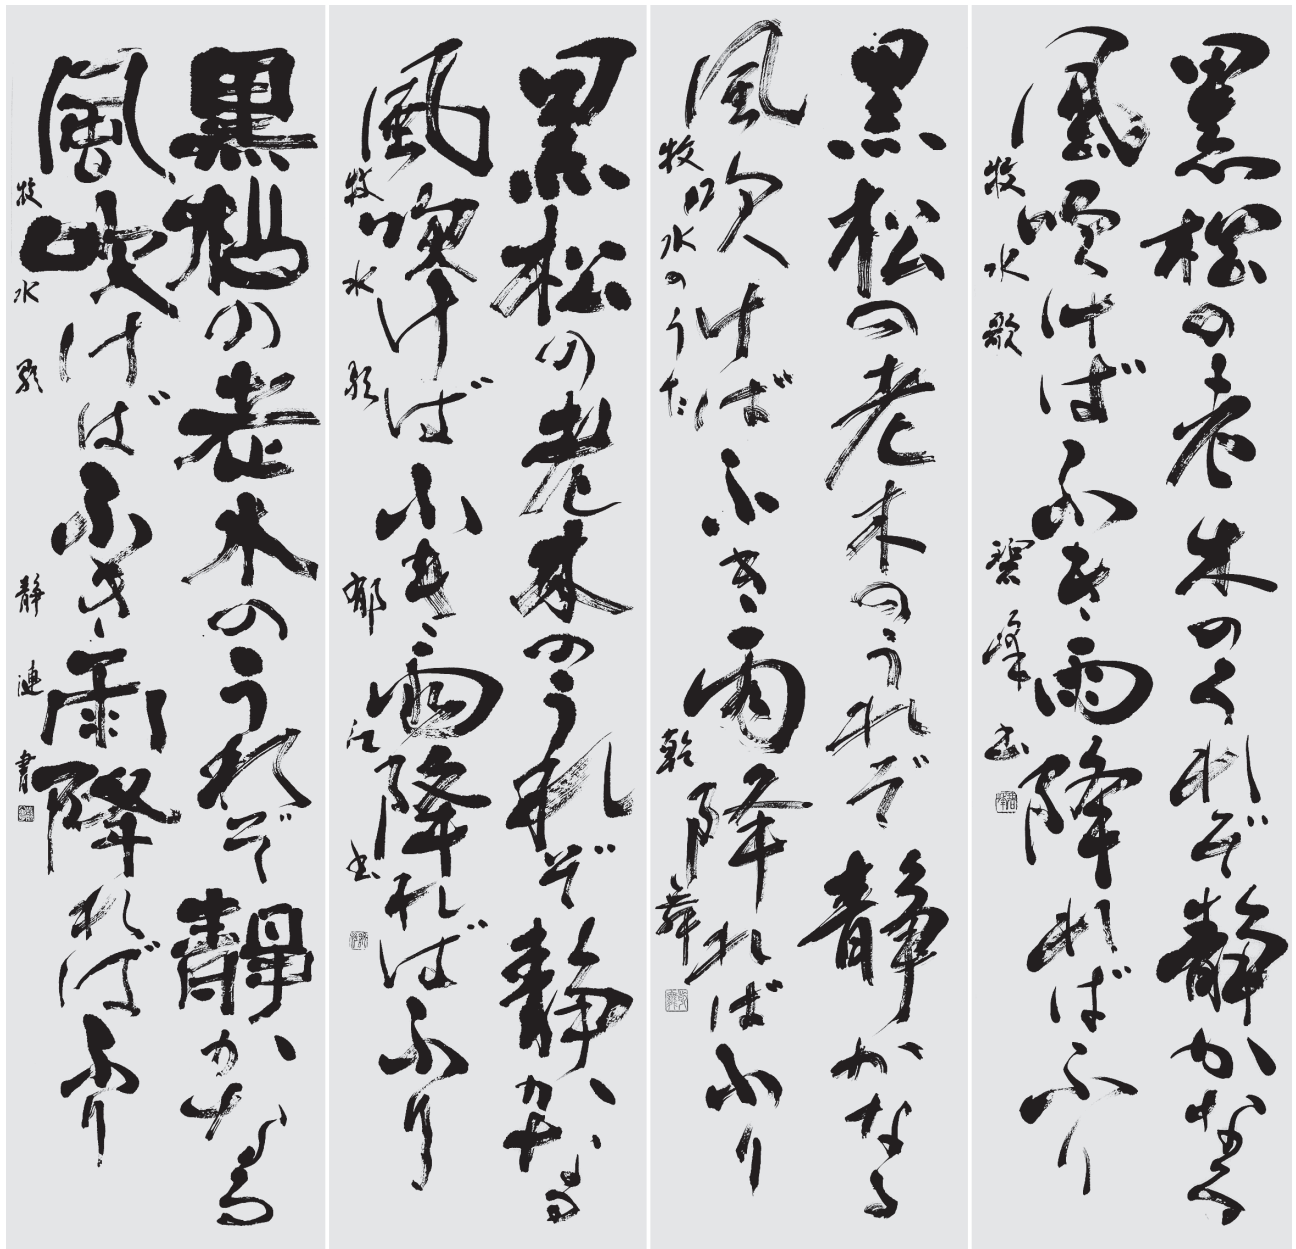 黒松の老木のうれぞ静かなる
風吹けばふき雨降ればふり
牧水歌 碧峰書
黒松の老木のうれぞ静かなる
風吹けばふき雨降ればふり
牧水のうた 乾舞
黒松の老木のうれぞ静かなる
風吹けばふき雨降ればふり
牧水歌 郁江書
黒松の老木のうれぞ静かなる
風吹けばふき雨降ればふり
牧水歌 静漣書